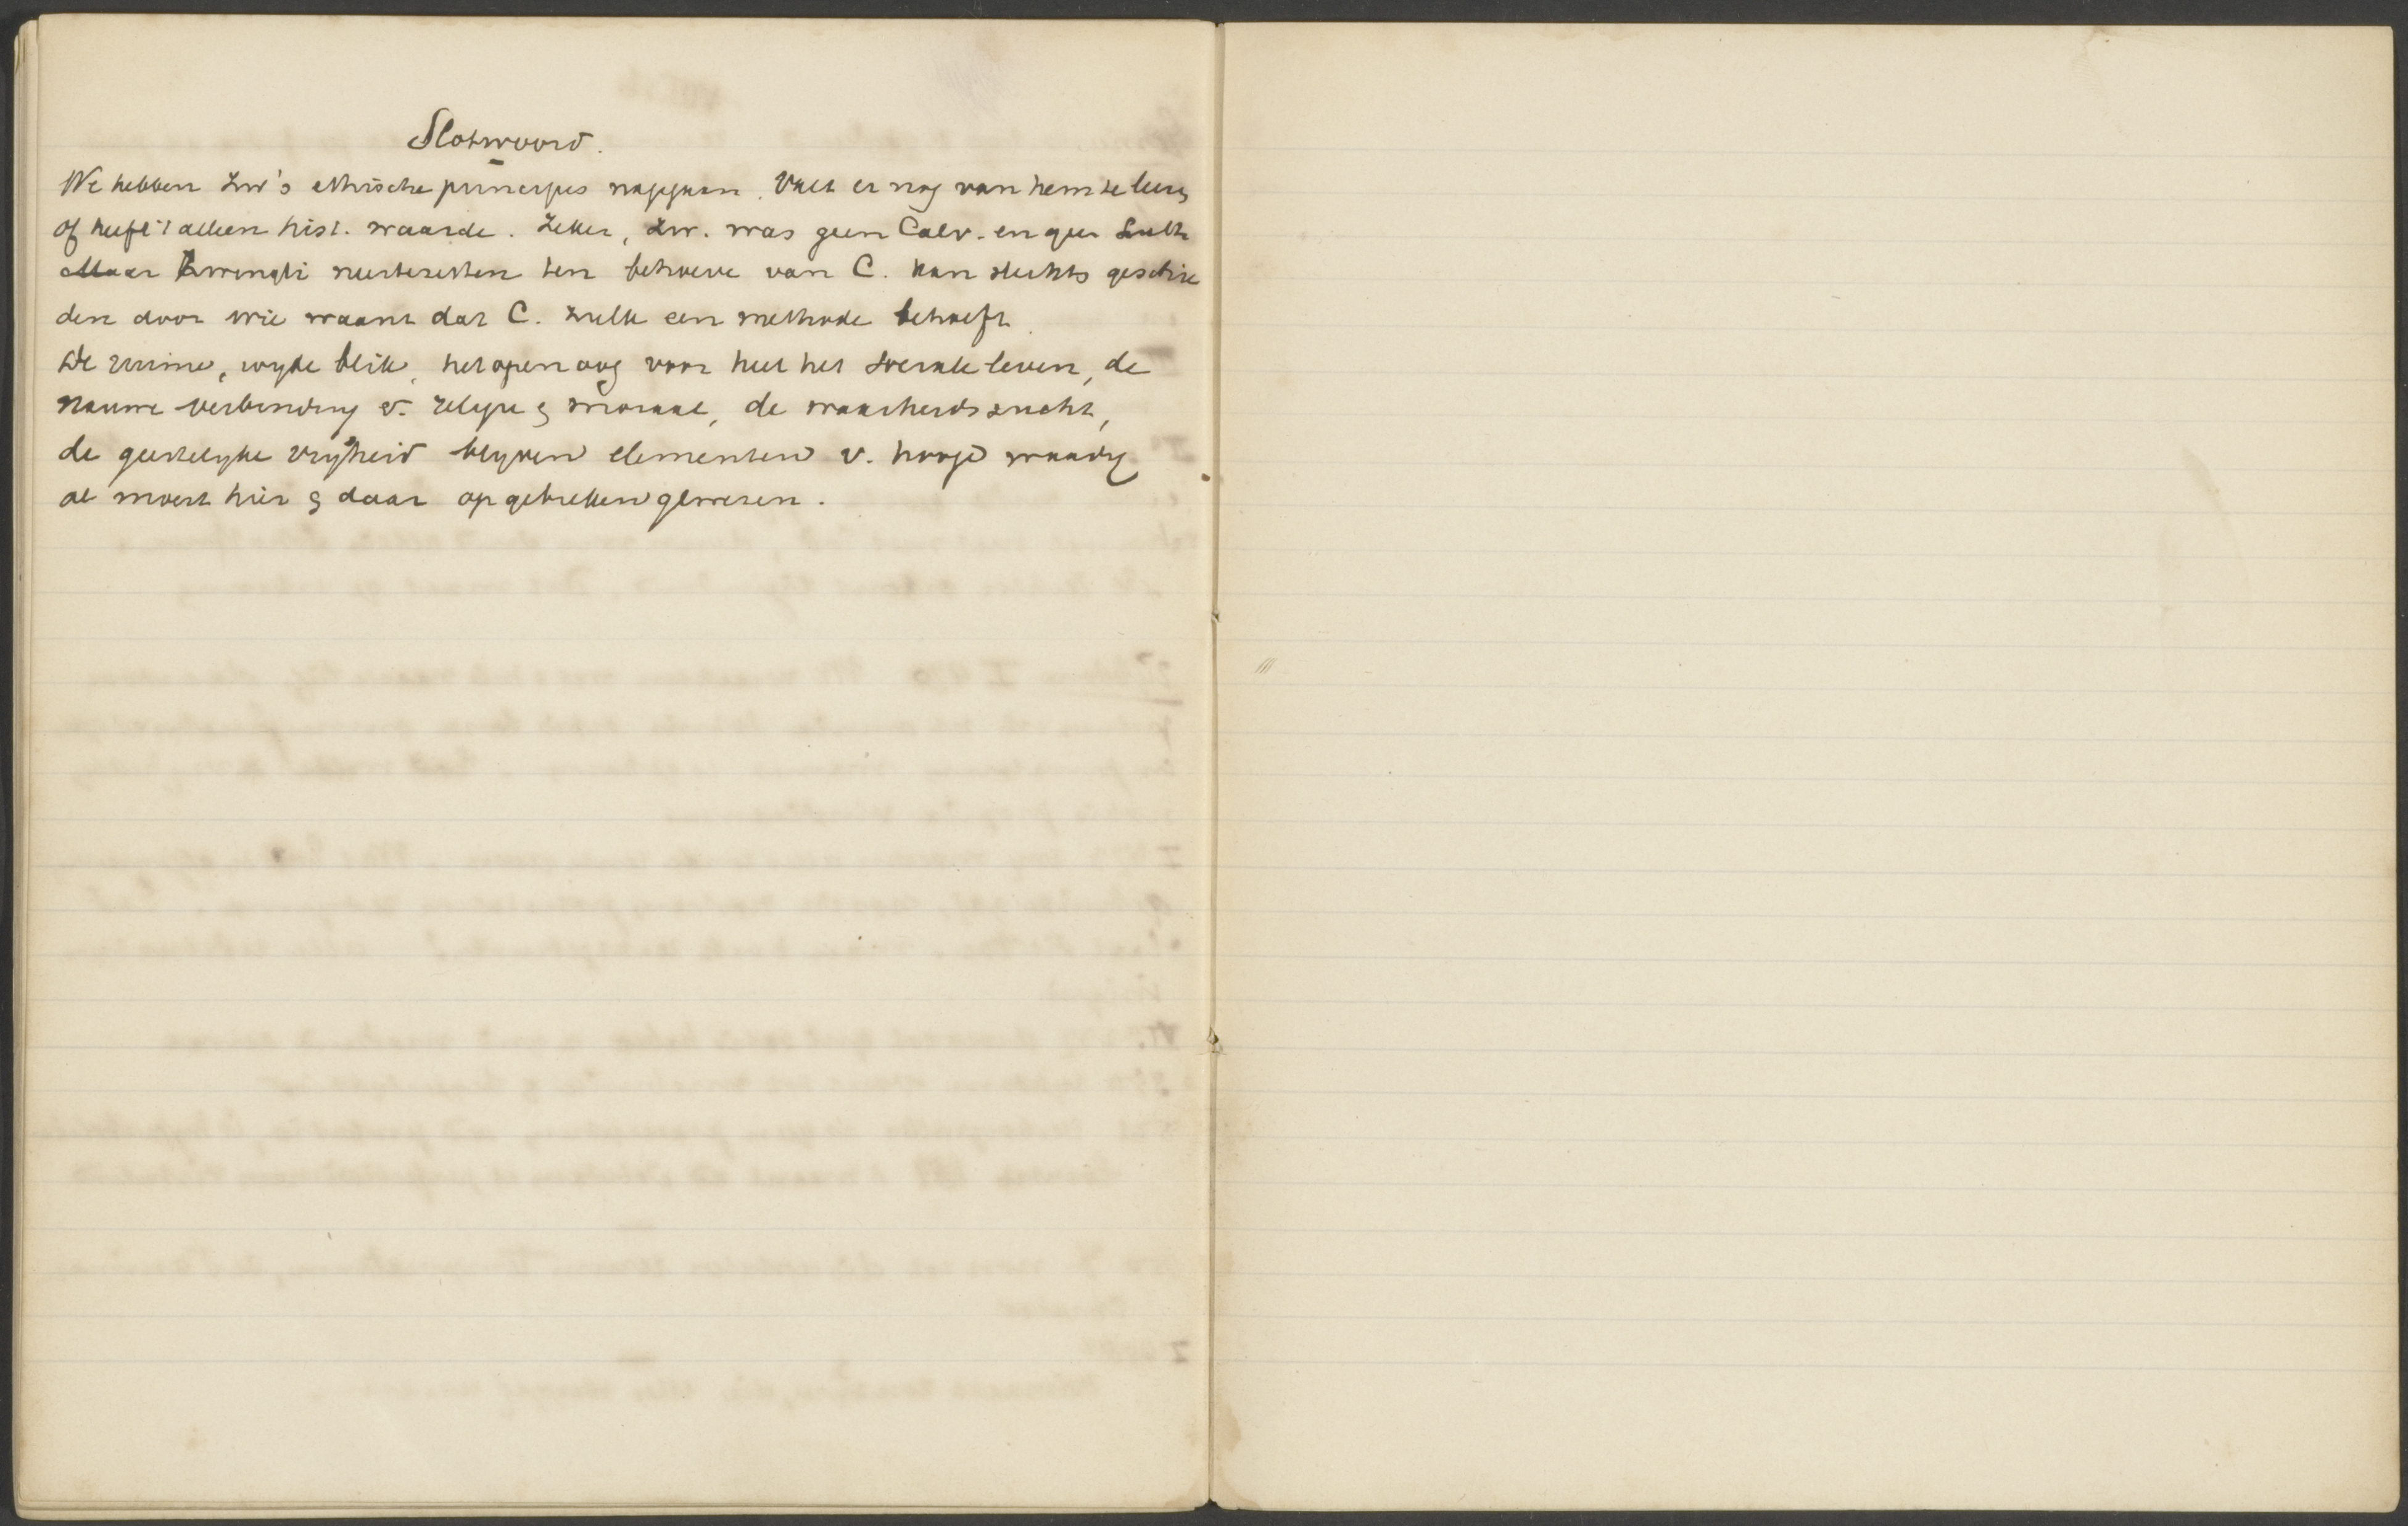 Slotwoord.
We hebben Zw's ethische principes nagegaan. Valt er nog van hem te leeren
of heeft 't alleen hist. waarde. Zeker, Zw. was geen Calv. en geen Luth
Maar Zwingli neerzetten ten behoeve van C. kan slechts geschie
den door wie waant dat C. zulk een methode behoeft.
De ruime, wijde blik, het open oog voor heel het sociale leven, de
nauwe verbinding v. religie & moraal, de waarheidszucht,
de geestelijke vrijheid blijven elementen v. hooge waarde
al moest hier & daar op gebreken gewezen.